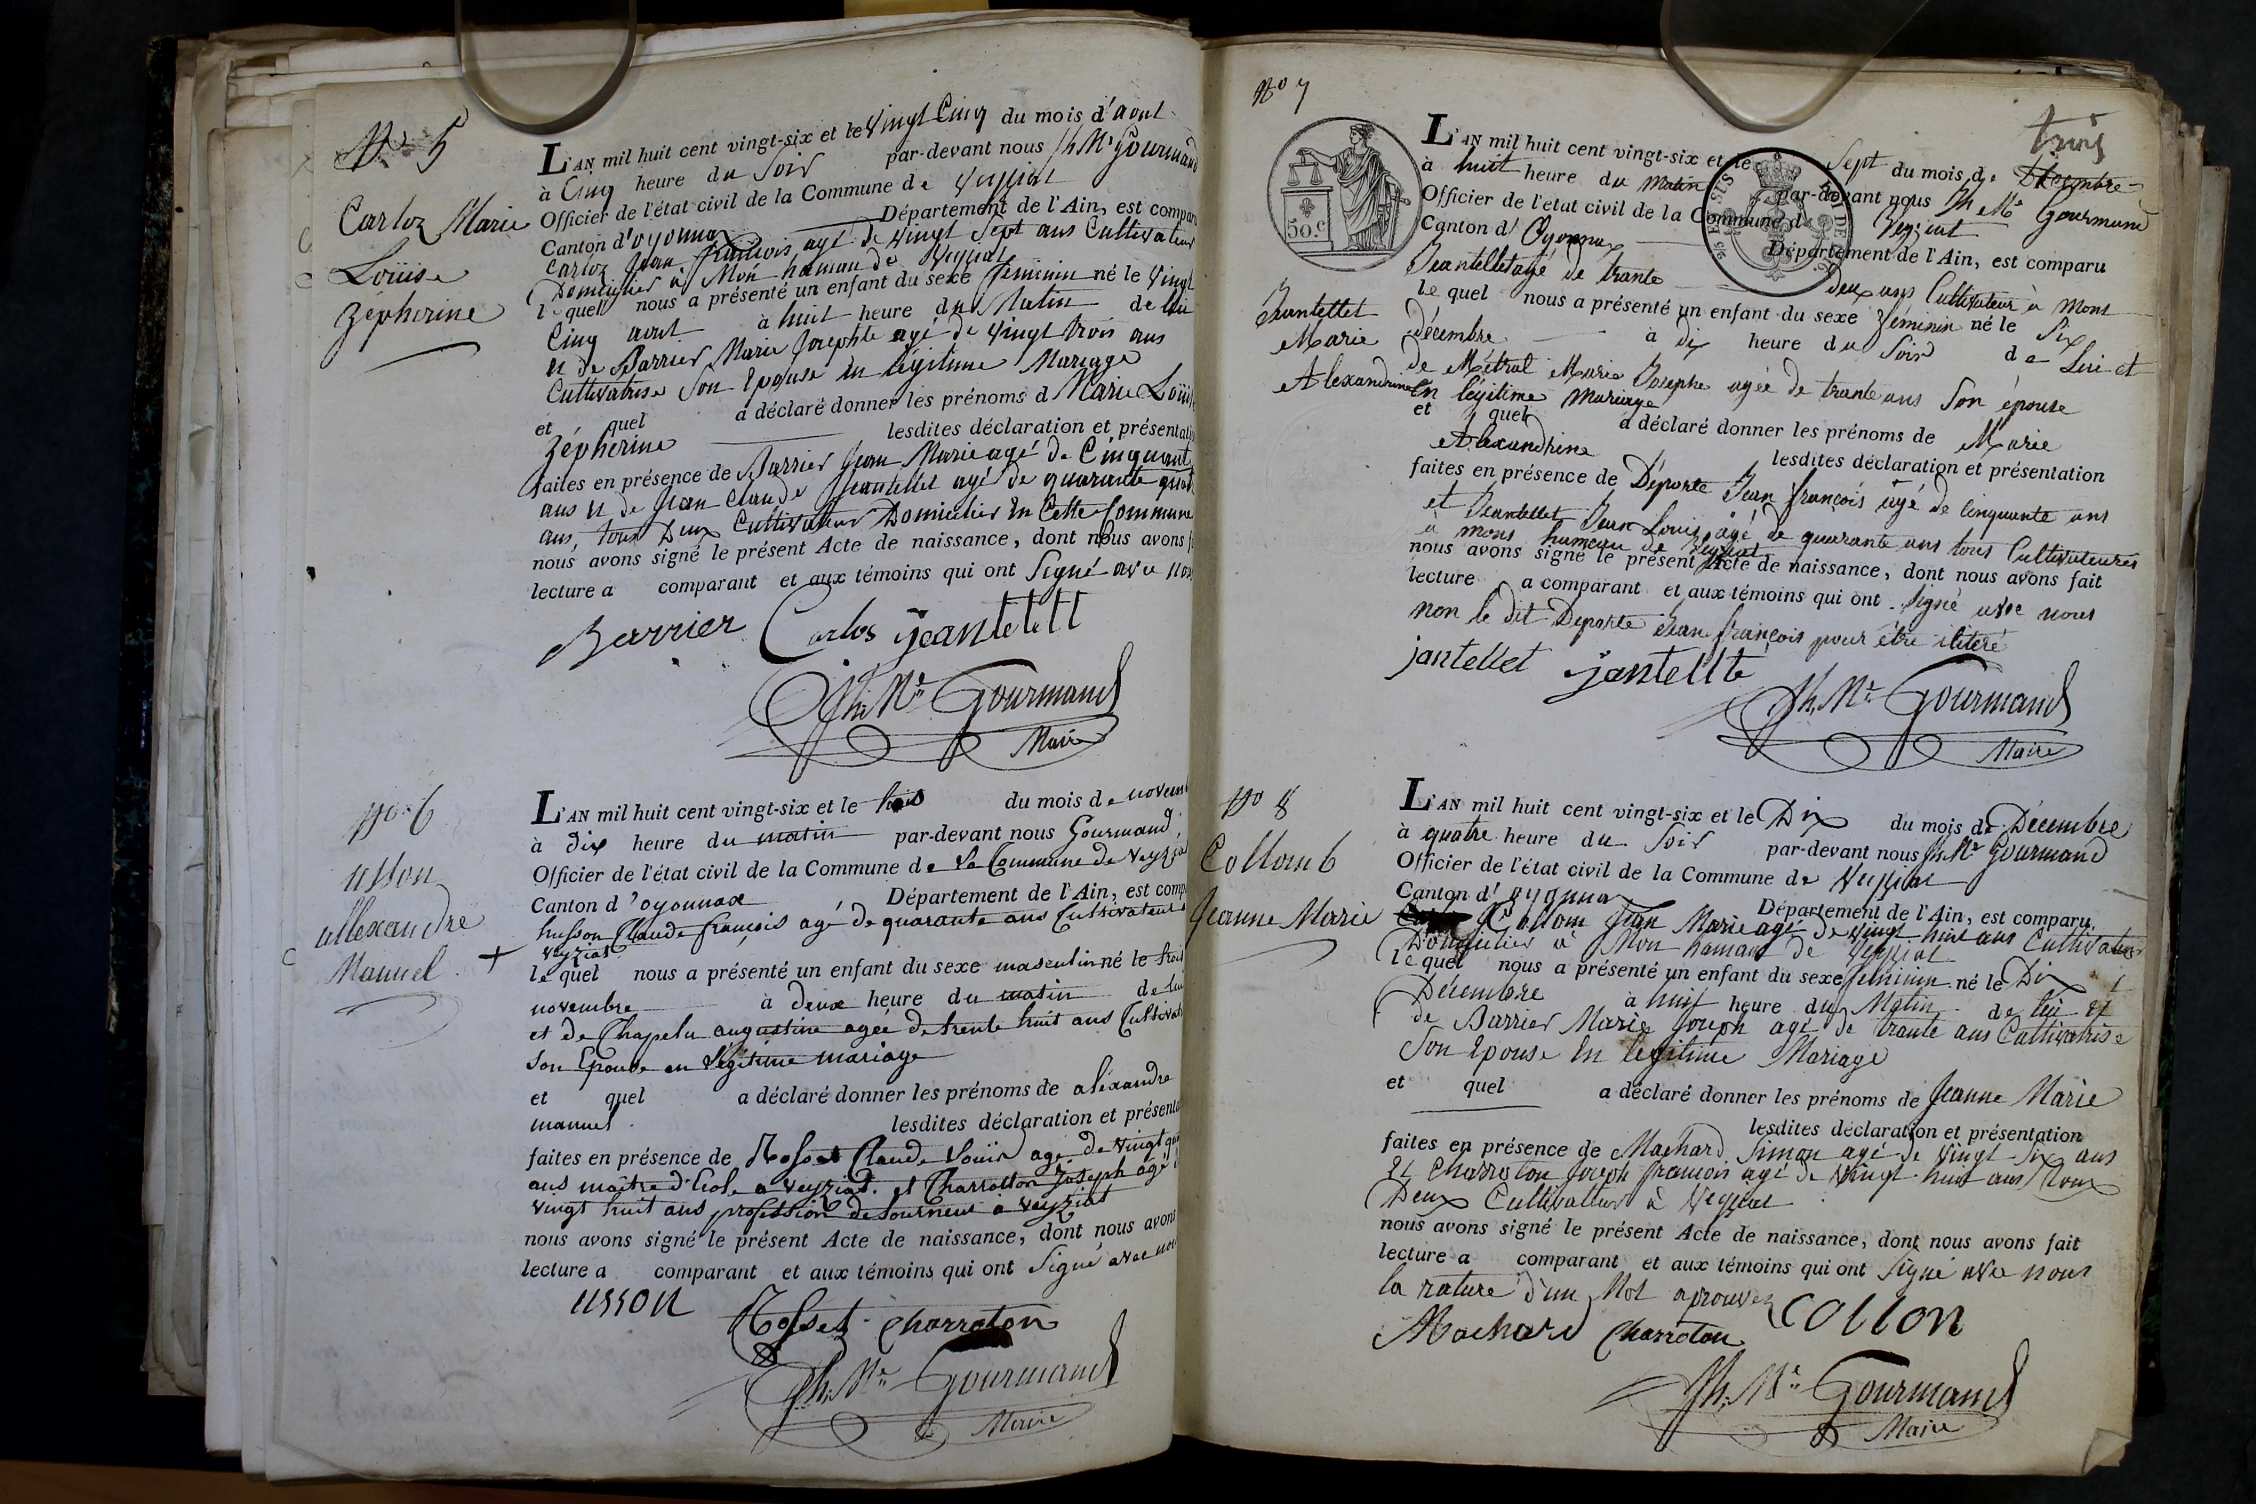 N° 5
Carloz Marie
Loüise
Zépherine
L'AN mil huit cent vingt-six et le vingt Cinq du mois d'aout
à Cinq heure du Soir par-devant nous Jh Me Gourmand
Officier de l'état civil de la Commune de Veyziat
Canton d'oyonnax Département de l'Ain, est compar
Carloz Jean francois agé de vingt Sept ans Cultivateur
Domicilier à Mon hamau de Veyziat
le quel nous a présenté un enfant du sexe féminin né le vingt
Cinq aout à huit heure du Matin de lui
et de Barrier Marie Josephte agé de vingt trois ans
Cultivatrise Son Epouse en légitime Mariage
et quel a déclaré donner les prénoms d Marie Loüise
Zépherine lesdites déclaration et présentation
faites en présence de Barrier Jean Marie agé de Cinquant
ans et de Jean Claude Jeantellet agé de quarante quat
ans tous Deux Cultivateur Domicilier En Cette Commune
nous avons signé le présent Acte de naissance, dont nous avons f
lecture a comparant et aux témoins qui ont Signé avec nous
Barrier Carlos jeantelett
Jh Me Gourmand
Maire
N° 6
usson
allexandre
Manuel
+
L'AN mil huit cent vingt-six et le trois du mois de novemb
à dix heure du matin par-devant nous Gourmand
Officier de l'état civil de la Commune de La Commune de Veyzia
Canton d'oyonnax Département de l'Ain, est comp
husson Claude francois agé de quarante ans Cultivateur
veyziat
le quel nous a présenté un enfant du sexe masculin né le trois
novembre à deux heure du matin de lui
et de Chapelu augustine agée de trente huit ans Cultivat
Son Epouse en légitime mariage
et quel a déclaré donner les prénoms de aléxandre
manuel lesdites déclaration et présenta
faites en présence de Rosset Claude Louis agé de vingt qu
ans maître d'Ecole a veyziat et Charrotton Joseph agé d
vingt huit ans profession de tourneur a veyziat
nous avons signé le présent Acte de naissance, dont nous avons
lecture a comparant et aux témoins qui ont Signé avec nou
usson
Rosset Charroton
Jh Me Gourmand
Maire
N° 7
trois
50.c
Jeantellet
Marie
Alexandrine
L'AN mil huit cent vingt-six et le Sept du mois de Décembre
à huit heure du matin par-devant nous Jh Me Gourmand
Officier de l'état civil de la Commune de Veyziat
Canton d'Oyonnax Département de l'Ain, est comparu
Jeantellet agé de trante deux ans Cultivateur à Mons
le quel nous a présenté un enfant du sexe féminin né le Six
décembre à dix heure du Soir de Lui et
de Métral Marie Josephe agée de trante ans Son épouse
En légitime Mariage
et quel a déclaré donner les prénoms de Marie
Alexandrine lesdites déclaration et présentation
faites en présence de Déporte Jean françois agé de cinquante ans
et Jeantellet Jean Louis agé de quarante ans tous Cultivateures
à mons hameau de veyziat
nous avons signé le présent Acte de naissance, dont nous avons fait
lecture a comparant et aux témoins qui ont Signé avec nous
non le dit Deporte Jean françois pour être iliteré
jantellet jantellte
Jh Me Gourmand
Maire
N° 8
Collomb
Jeanne Marie
L'AN mil huit cent vingt-six et le Dix du mois de Décembre
à quatre heure du Soir par-devant nous Jh Me Gourmand
Officier de l'état civil de la Commune de Veyziat
Canton d'oyonnax Département de l'Ain, est comparu
Collom Jean Marie agé de vingt huit ans Cultivateur
Domicilier à Mon hamau de Veyziat
le quel nous a présenté un enfant du sexe féminin né le Dix
Décembre à huit heure du Matin de lui et
de Barrier Marie Joseph agé de trante ans Cultivatrise
Son Epouse En légitime Mariage
et quel a déclaré donner les prénoms de Jeanne Marie
lesdites déclaration et présentation
faites en présence de Machard Simon agé de vingt Six ans
Et Charroton Joseph francois agé de vingt huit ans Tous
Deux Cultivateur à Veyziat
nous avons signé le présent Acte de naissance, dont nous avons fait
lecture a comparant et aux témoins qui ont Signé avec nous
la rature d'un Mot aprouvez
Machard Charroton Collon
Jh Me Gourmand
Maire